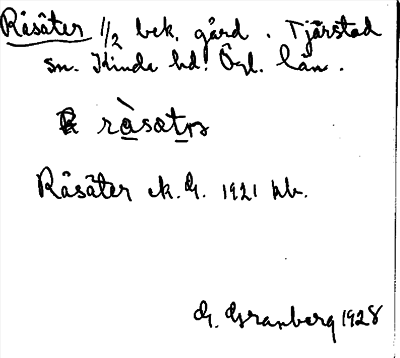 Råsäter 1/2 bek. gård. Tjärstad
sn. Kinda hd. Ögl. län.
Råsäter ek. G. 1921 hb.
G. Granberg 1928